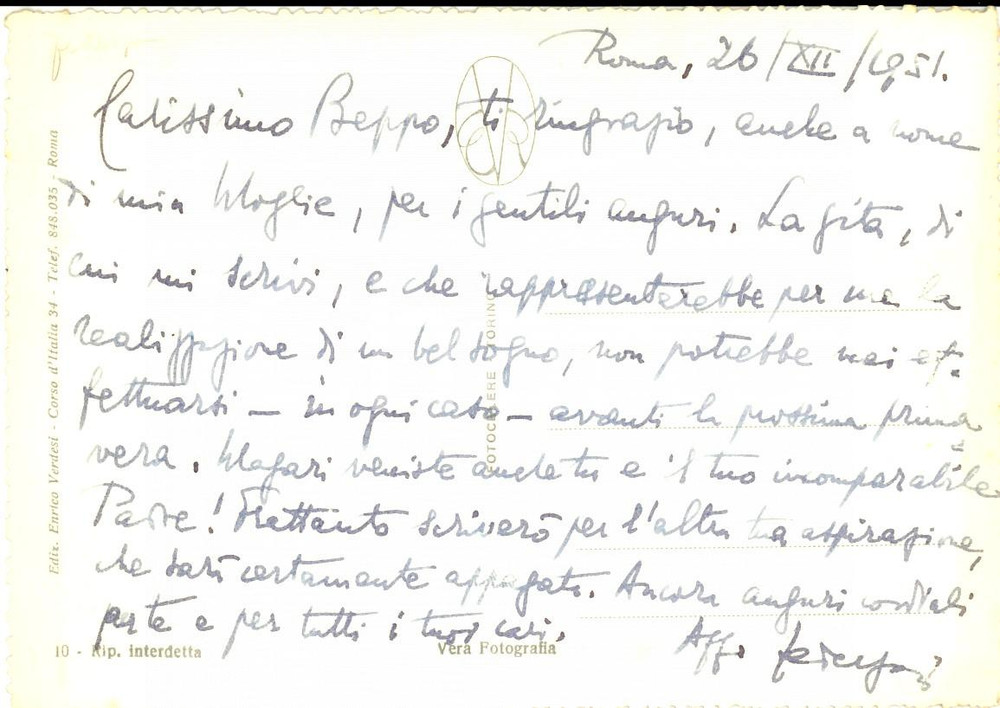 Roma, 26/XII/1951.
Carissimo Beppo, ti ringrazio, anche a nome
di mia Moglie, per i gentili auguri. La gita, di
cui mi scrivi, e che rappresenterebbe per me la
realizzazione di un bel sogno, non potrebbe mai ef-
fettuarsi — in ogni caso — avanti la prossima prima
vera. Magari veniste anche tu e il tuo incomparabile
Padre! Frattanto scriverò per l'altra tua aspirazione,
che sarà certamente appagata. Ancora auguri cordiali
a te e per tutti i tuoi cari.
Aff.
Ediz. Enrico Verdesi - Corso d'Italia 34 - Telef. 848.035 - Roma
FOTOCELERE TORINO
10 - Rip. interdetta
Vera Fotografia